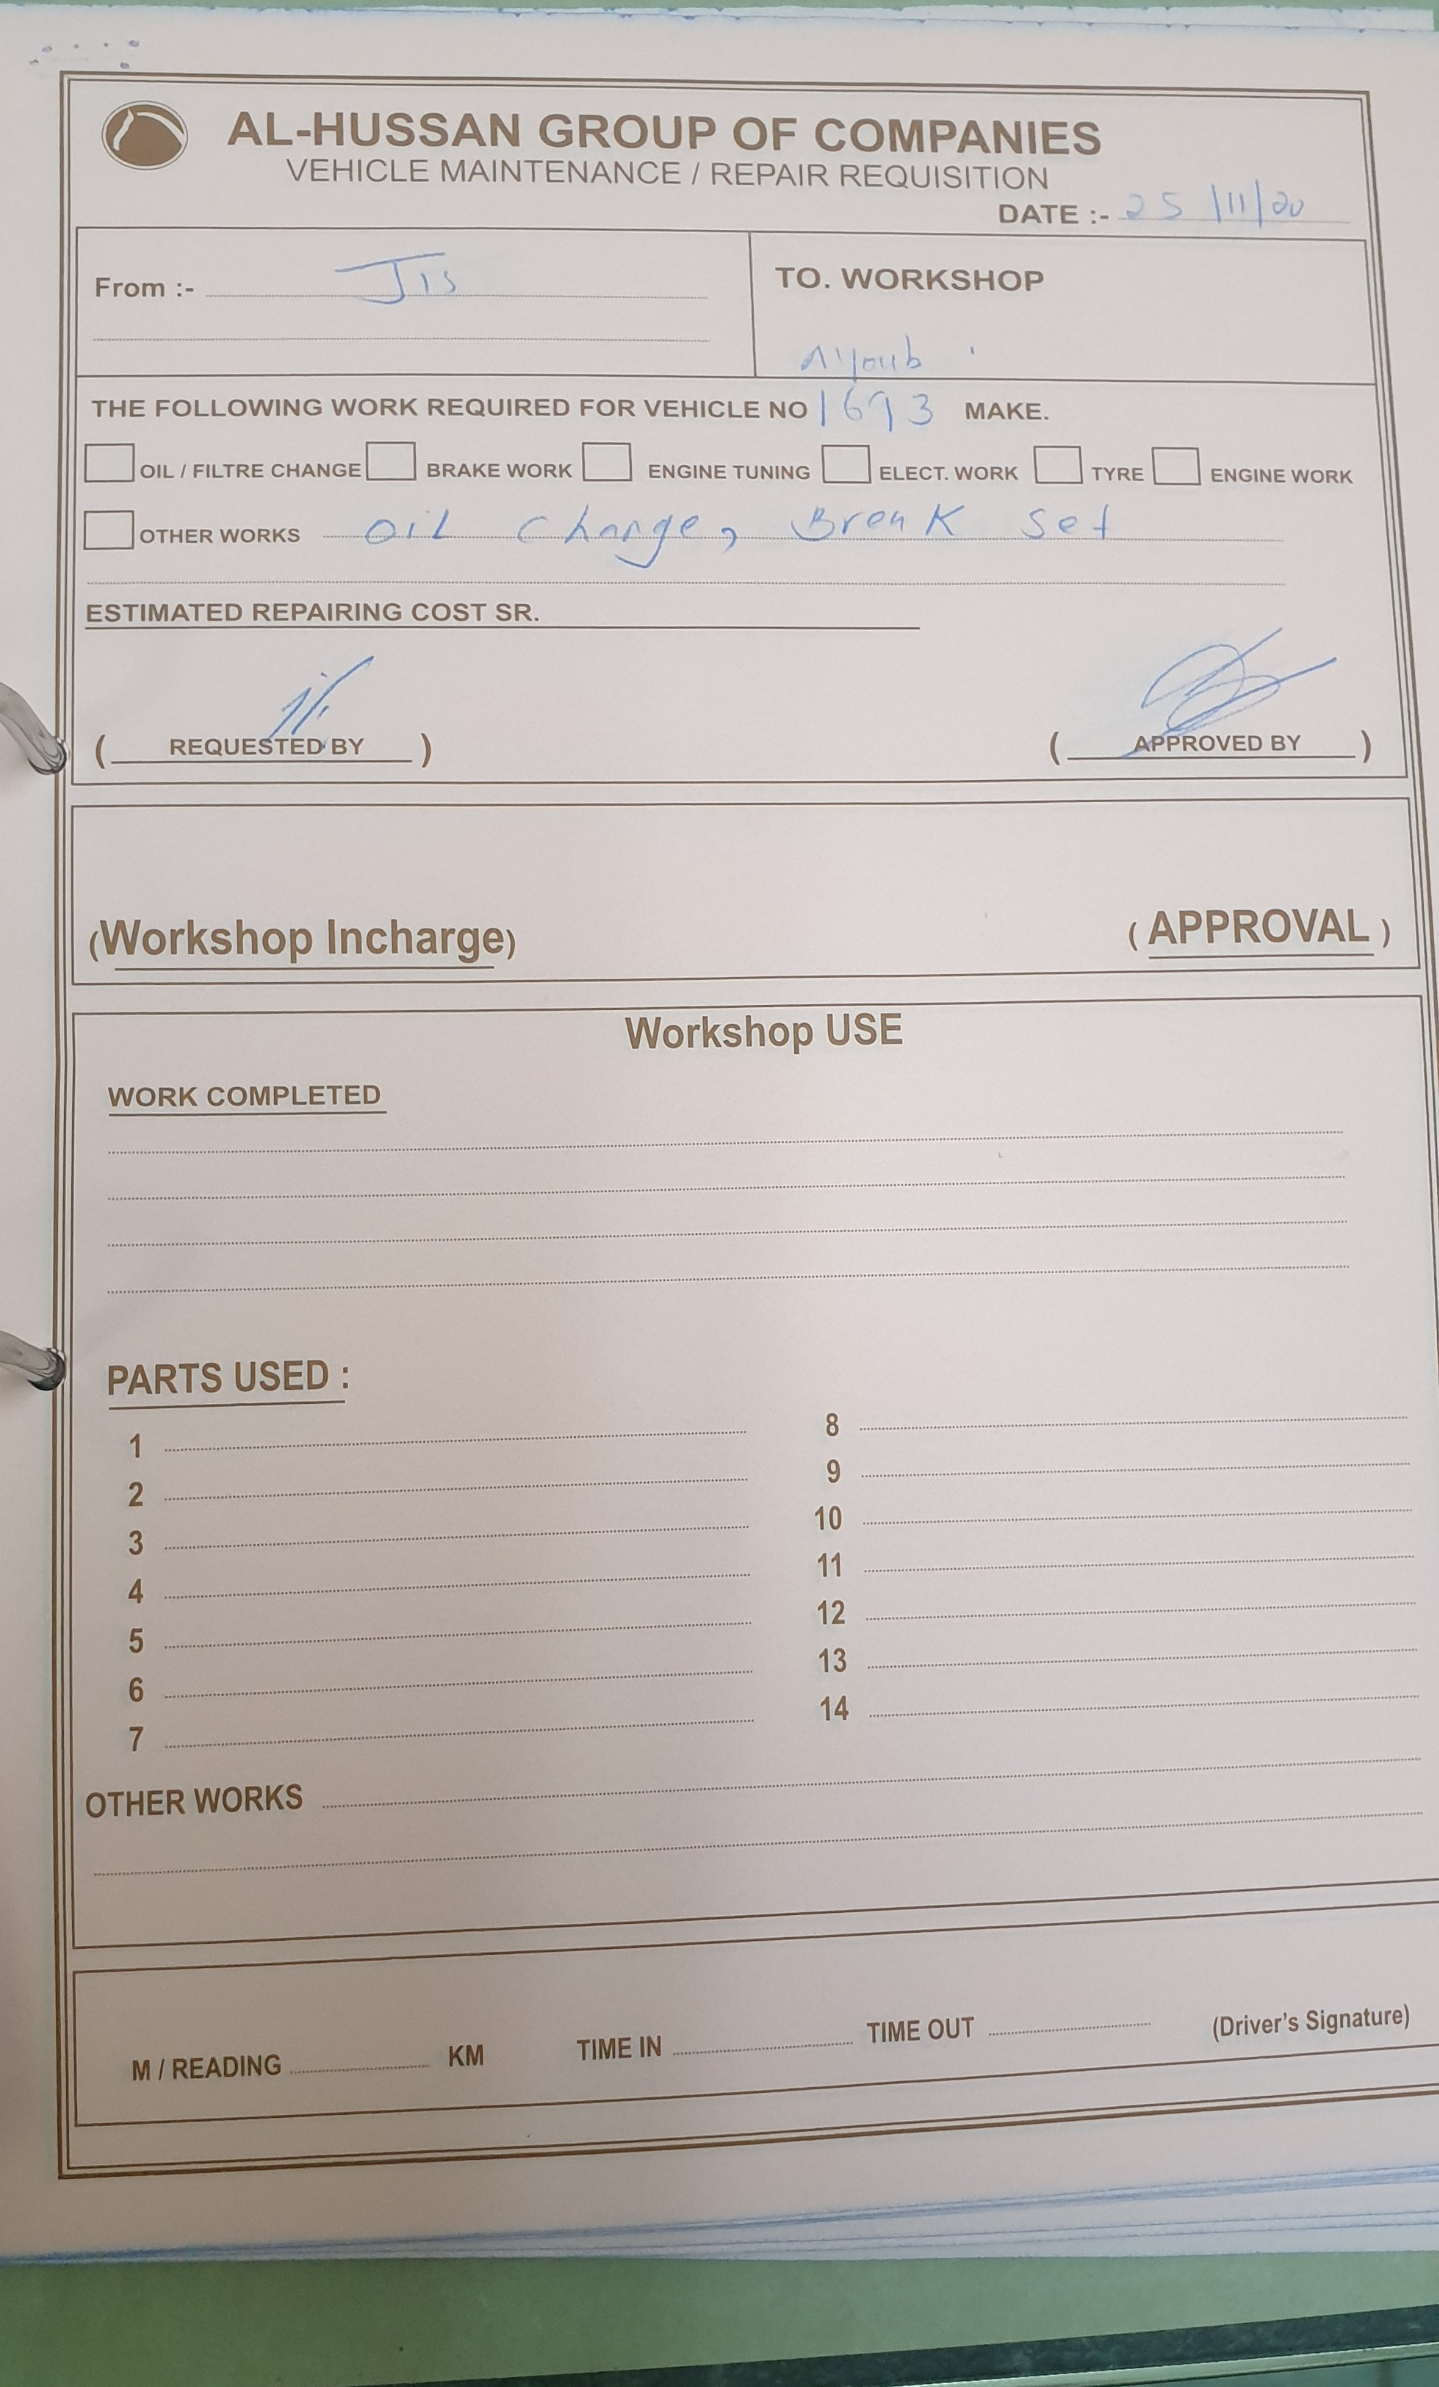 AL-HUSSAN GROUP OF COMPANIES
VEHICLE MAINTENANCE / REPAIR REQUISITION
DATE :- 25/11/20
From :- JIS
TO. WORKSHOP
Aiyoub
THE FOLLOWING WORK REQUIRED FOR VEHICLE NO 1693 MAKE.
OIL / FILTRE CHANGE BRAKE WORK ENGINE TUNING ELECT. WORK TYRE ENGINE WORK
OTHER WORKS oil change, Break set
ESTIMATED REPAIRING COST SR.
( REQUESTED BY ) ( APPROVED BY )
(Workshop Incharge) ( APPROVAL )
Workshop USE
WORK COMPLETED
PARTS USED :
1 8
2 9
3 10
4 11
5 12
6 13
7 14
OTHER WORKS
M / READING KM TIME IN TIME OUT (Driver's Signature)